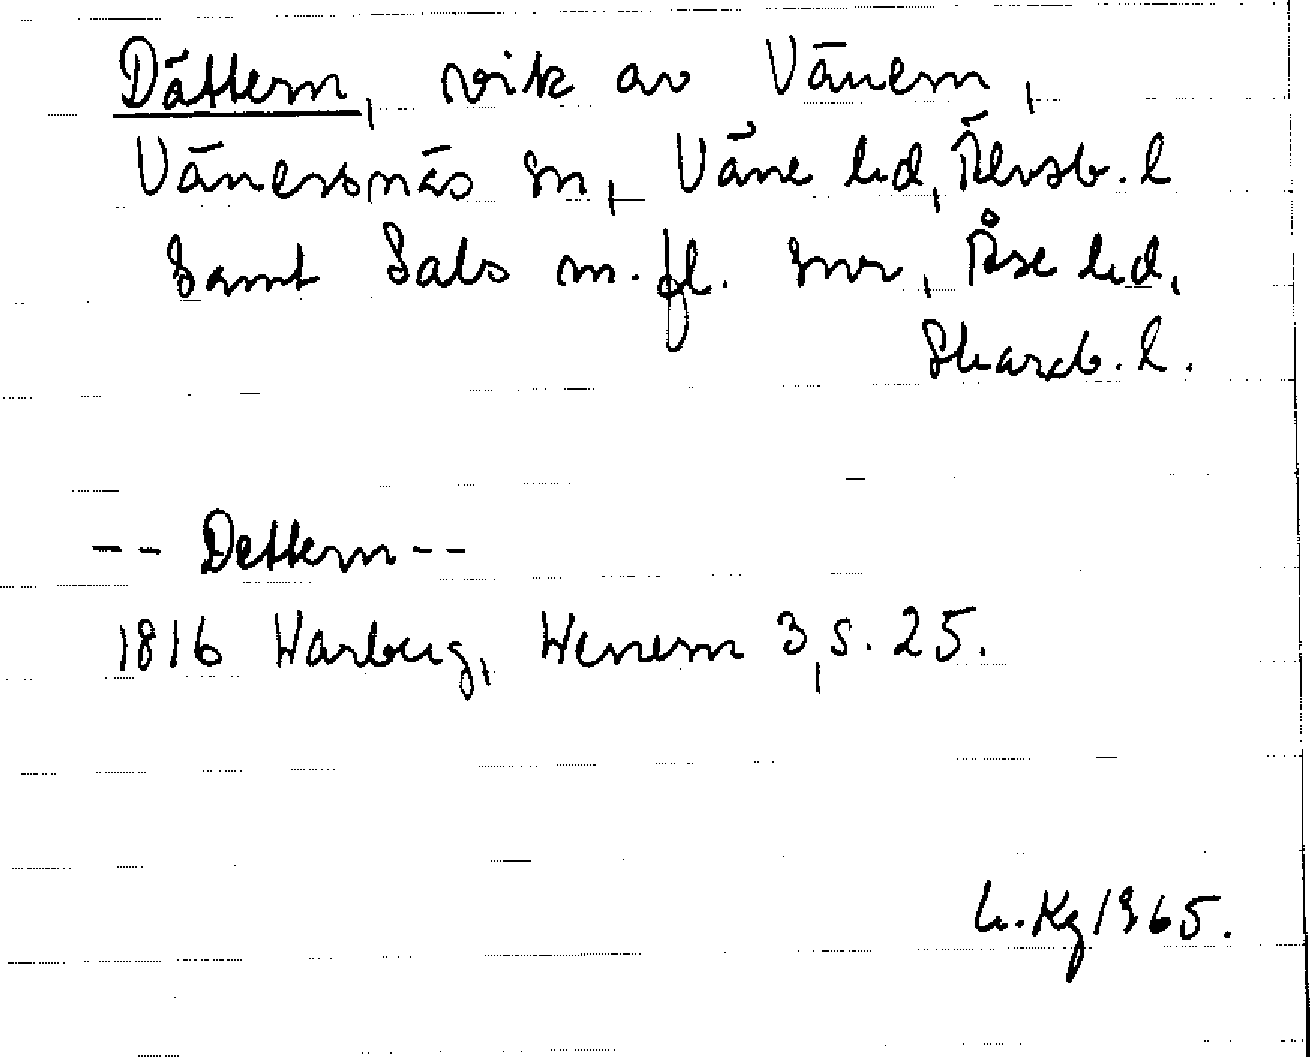 Dättern, vik av Vänern,
Vänersnäs sn, Väne hd, Älvsb. l
samt Sals m. fl. snr, Åse hd,
Skarab. l.
-- Dettern --
1816 Warberg, Wenern 3, s. 25.
h. Kg 1965.